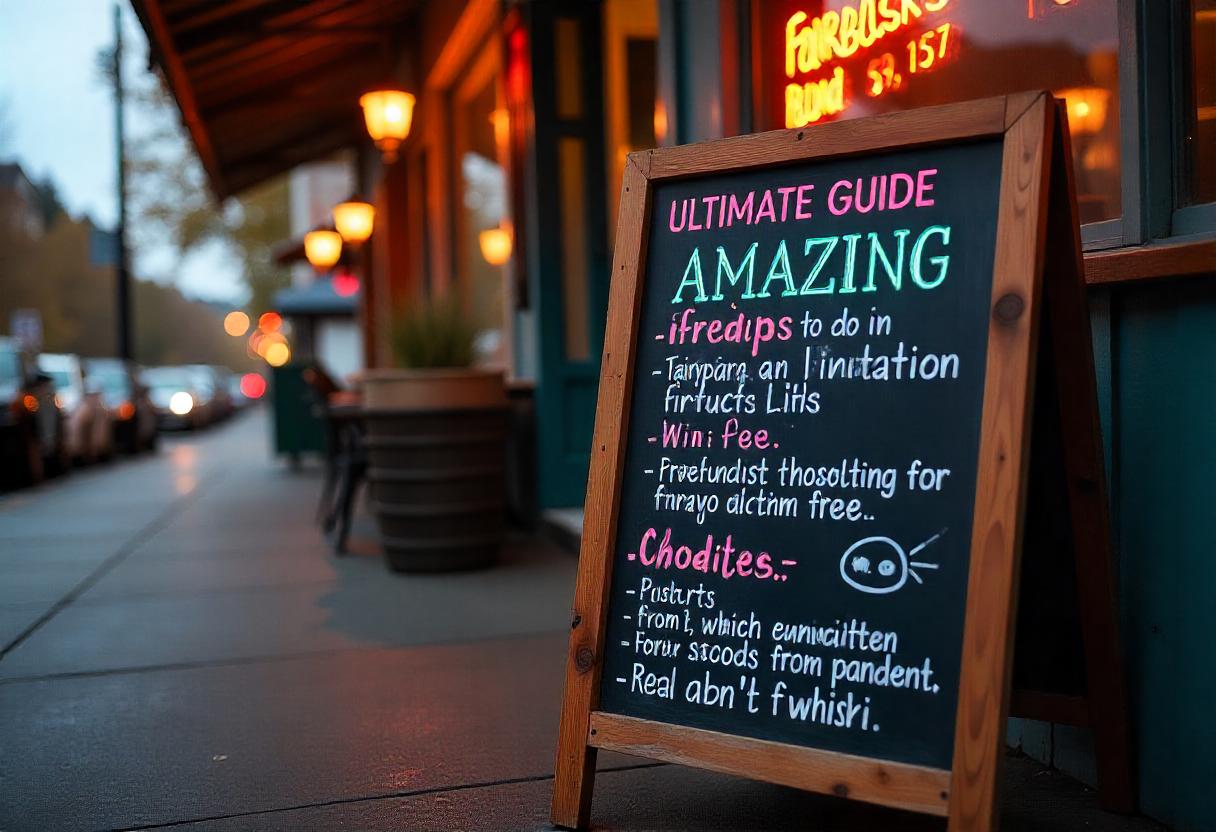 FAIRBUSKS
BDId 59,157
ULTIMATE GUIDE
AMAZING
-ifredips to do in
- an linitation
firfucts Lihs
-Wini fee.
- Prvefundist thosolting for
fnrayo alctnm free..
-Chodites.:-
- Pusturts
- from?, which
- Forur stcods from pandent.
-Real abn't fwhiskri.